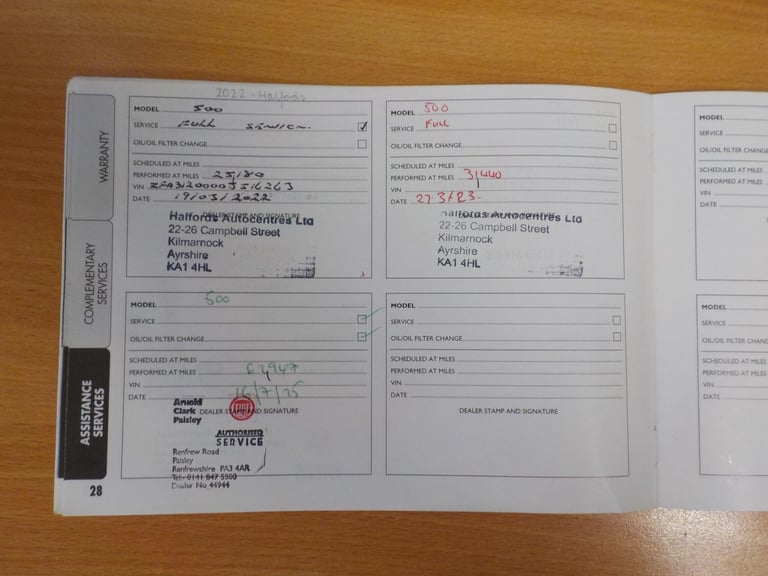 2022 - Halfords
MODEL 500
SERVICE FULL SERVICE.
OIL/OIL FILTER CHANGE
SCHEDULED AT MILES
PERFORMED AT MILES 23,180
VIN
DATE 19/03/2022
DEALER STAMP AND SIGNATURE
Halfords Autocentres Ltd
22-26 Campbell Street
Kilmarnock
Ayrshire
KA1 4HL
MODEL 500
SERVICE Full
OIL/OIL FILTER CHANGE
SCHEDULED AT MILES
PERFORMED AT MILES 31,440
VIN
DATE 27.3/R3-
Halfords Autocentres Ltd
22-26 Campbell Street
Kilmarnock
Ayrshire
KA1 4HL
MODEL
SERVICE
OIL/OIL FILTER CHANG
SCHEDULED AT MILES
PERFORMED AT MILES
VIN
DATE
MODEL 500
SERVICE
OIL/OIL FILTER CHANGE
SCHEDULED AT MILES
PERFORMED AT MILES 62,947
VIN
DATE 16/7/25
DEALER STAMP AND SIGNATURE
Arnold
Clark
Paisley
FIAT
AUTHORISED
SERVICE
Renfrew Road
Paisley
Renfrewshire PA3 4AR
Tel:- 0141 847 5500
Dealer No 44944
MODEL
SERVICE
OIL/OIL FILTER CHANGE
SCHEDULED AT MILES
PERFORMED AT MILES
VIN
DATE
DEALER STAMP AND SIGNATURE
MODEL
SERVICE
OIL/OIL FILTER CHAN
SCHEDULED AT MILES
PERFORMED AT MILES
VIN
DATE
WARRANTY
COMPLEMENTARY
SERVICES
ASSISTANCE
SERVICES
28